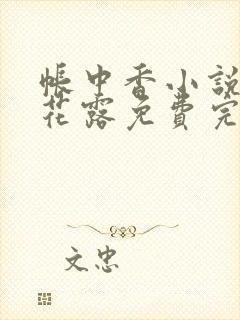 帳中香小說
花露免費完
文忠